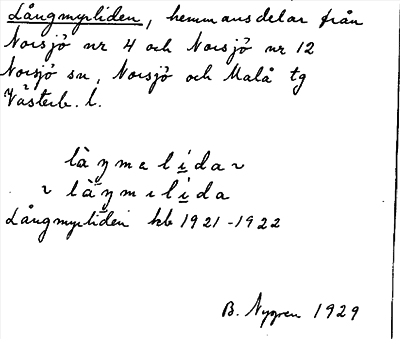 Långmyrliden, hemmansdelar från
Norsjö nr 4 och Norsjö nr 12
Norsjö sn, Norsjö och Malå tg
Västerb. l.
Långmyrliden kb 1921-1922
B. Nygren 1929